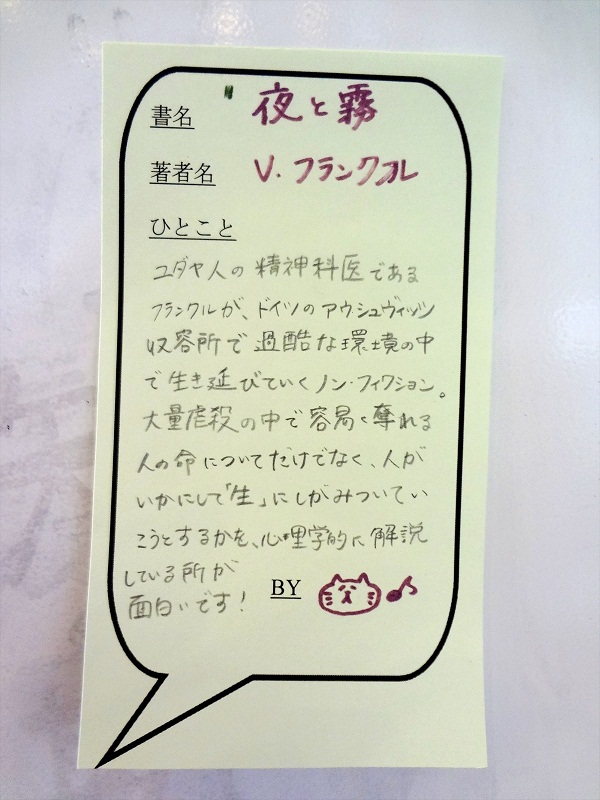 書名 夜と霧
著者名 V. フランクル
ひとこと
ユダヤ人の精神科医である
フランクルが、ドイツのアウシュヴィッツ
収容所で過酷な環境の中
で生き延びていくノン・フィクション。
大量虐殺の中で容易く奪れる
人の命についてだけでなく、人が
いかにして「生」にしがみついてい
こうとするかを、心理学的に解説
している所が
面白いです!
BY